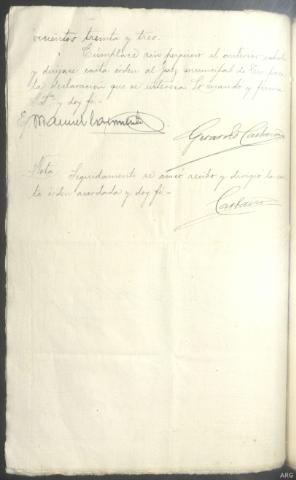 vecientos treinta y tres.
Cúmplase sin perjuicio el anterior exhorto
y dirijase carta órden al Juez municipal de para
la declaración que se interesa lo mandó y firma
S. Sª y doy fé.
E/ Manuel
Gerardo Castaion
Nota Seguidamente se acusó recibo y dirigió la car-
ta órden acordada y doy fé.-
ARG